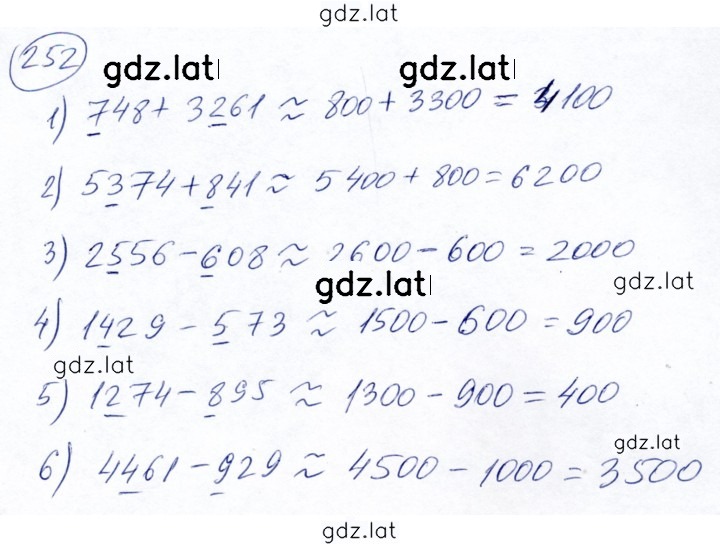 gdz.lat
252
gdz.lat gdz.lat
1) 748 + 3261 ≈ 800 + 3300 = 4100
2) 5374 + 841 ≈ 5400 + 800 = 6200
3) 2556 - 608 ≈ 2600 - 600 = 2000
gdz.lat gdz.lat
4) 1429 - 573 ≈ 1500 - 600 = 900
gdz.lat
5) 1274 - 895 ≈ 1300 - 900 = 400
gdz.lat
6) 4461 - 929 ≈ 4500 - 1000 = 3500
gdz.lat